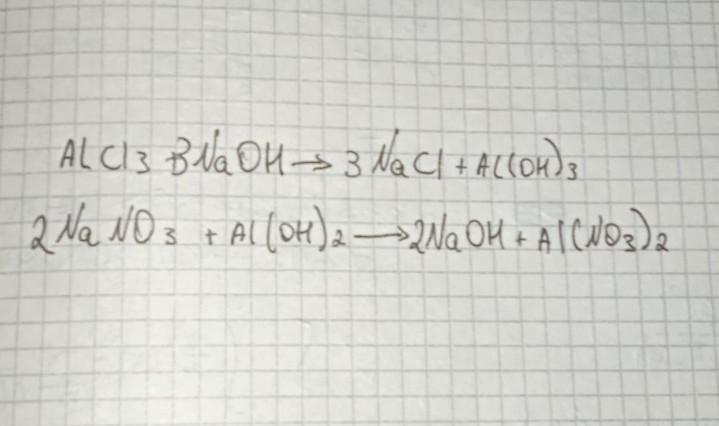 AlCl3 +3NaOH → 3NaCl + Al(OH)3
2NaNO3 + Al(OH)2 → 2NaOH + Al(NO3)2